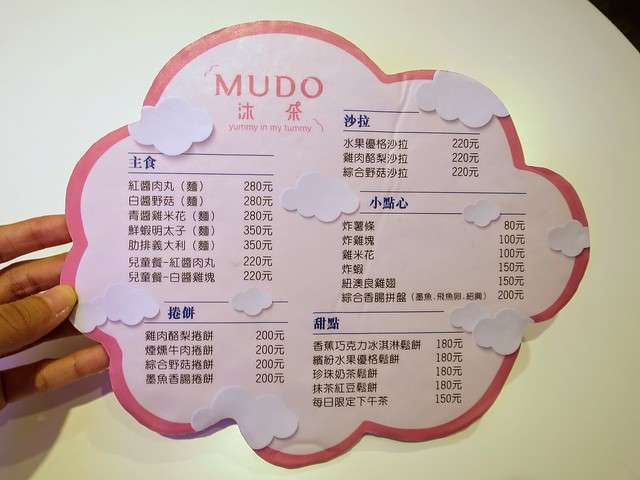 MUDO
沐朵
yummy in my tummy
主食
紅醬肉丸（麵） 280元
白醬野菇（麵） 280元
青醬雞米花（麵） 280元
鮮蝦明太子（麵） 350元
肋排義大利（麵） 350元
兒童餐-紅醬肉丸 220元
兒童餐-白醬雞塊 220元
捲餅
雞肉酪梨捲餅 200元
煙燻牛肉捲餅 200元
綜合野菇捲餅 200元
墨魚香腸捲餅 200元
沙拉
水果優格沙拉 220元
雞肉酪梨沙拉 220元
綜合野菇沙拉 220元
小點心
炸薯條 80元
炸雞塊 100元
雞米花 100元
炸蝦 150元
紐澳良雞翅 150元
綜合香腸拼盤（墨魚.飛魚卵.紹興） 200元
甜點
香蕉巧克力冰淇淋鬆餅 180元
繽紛水果優格鬆餅 180元
珍珠奶茶鬆餅 180元
抹茶紅豆鬆餅 180元
每日限定下午茶 150元